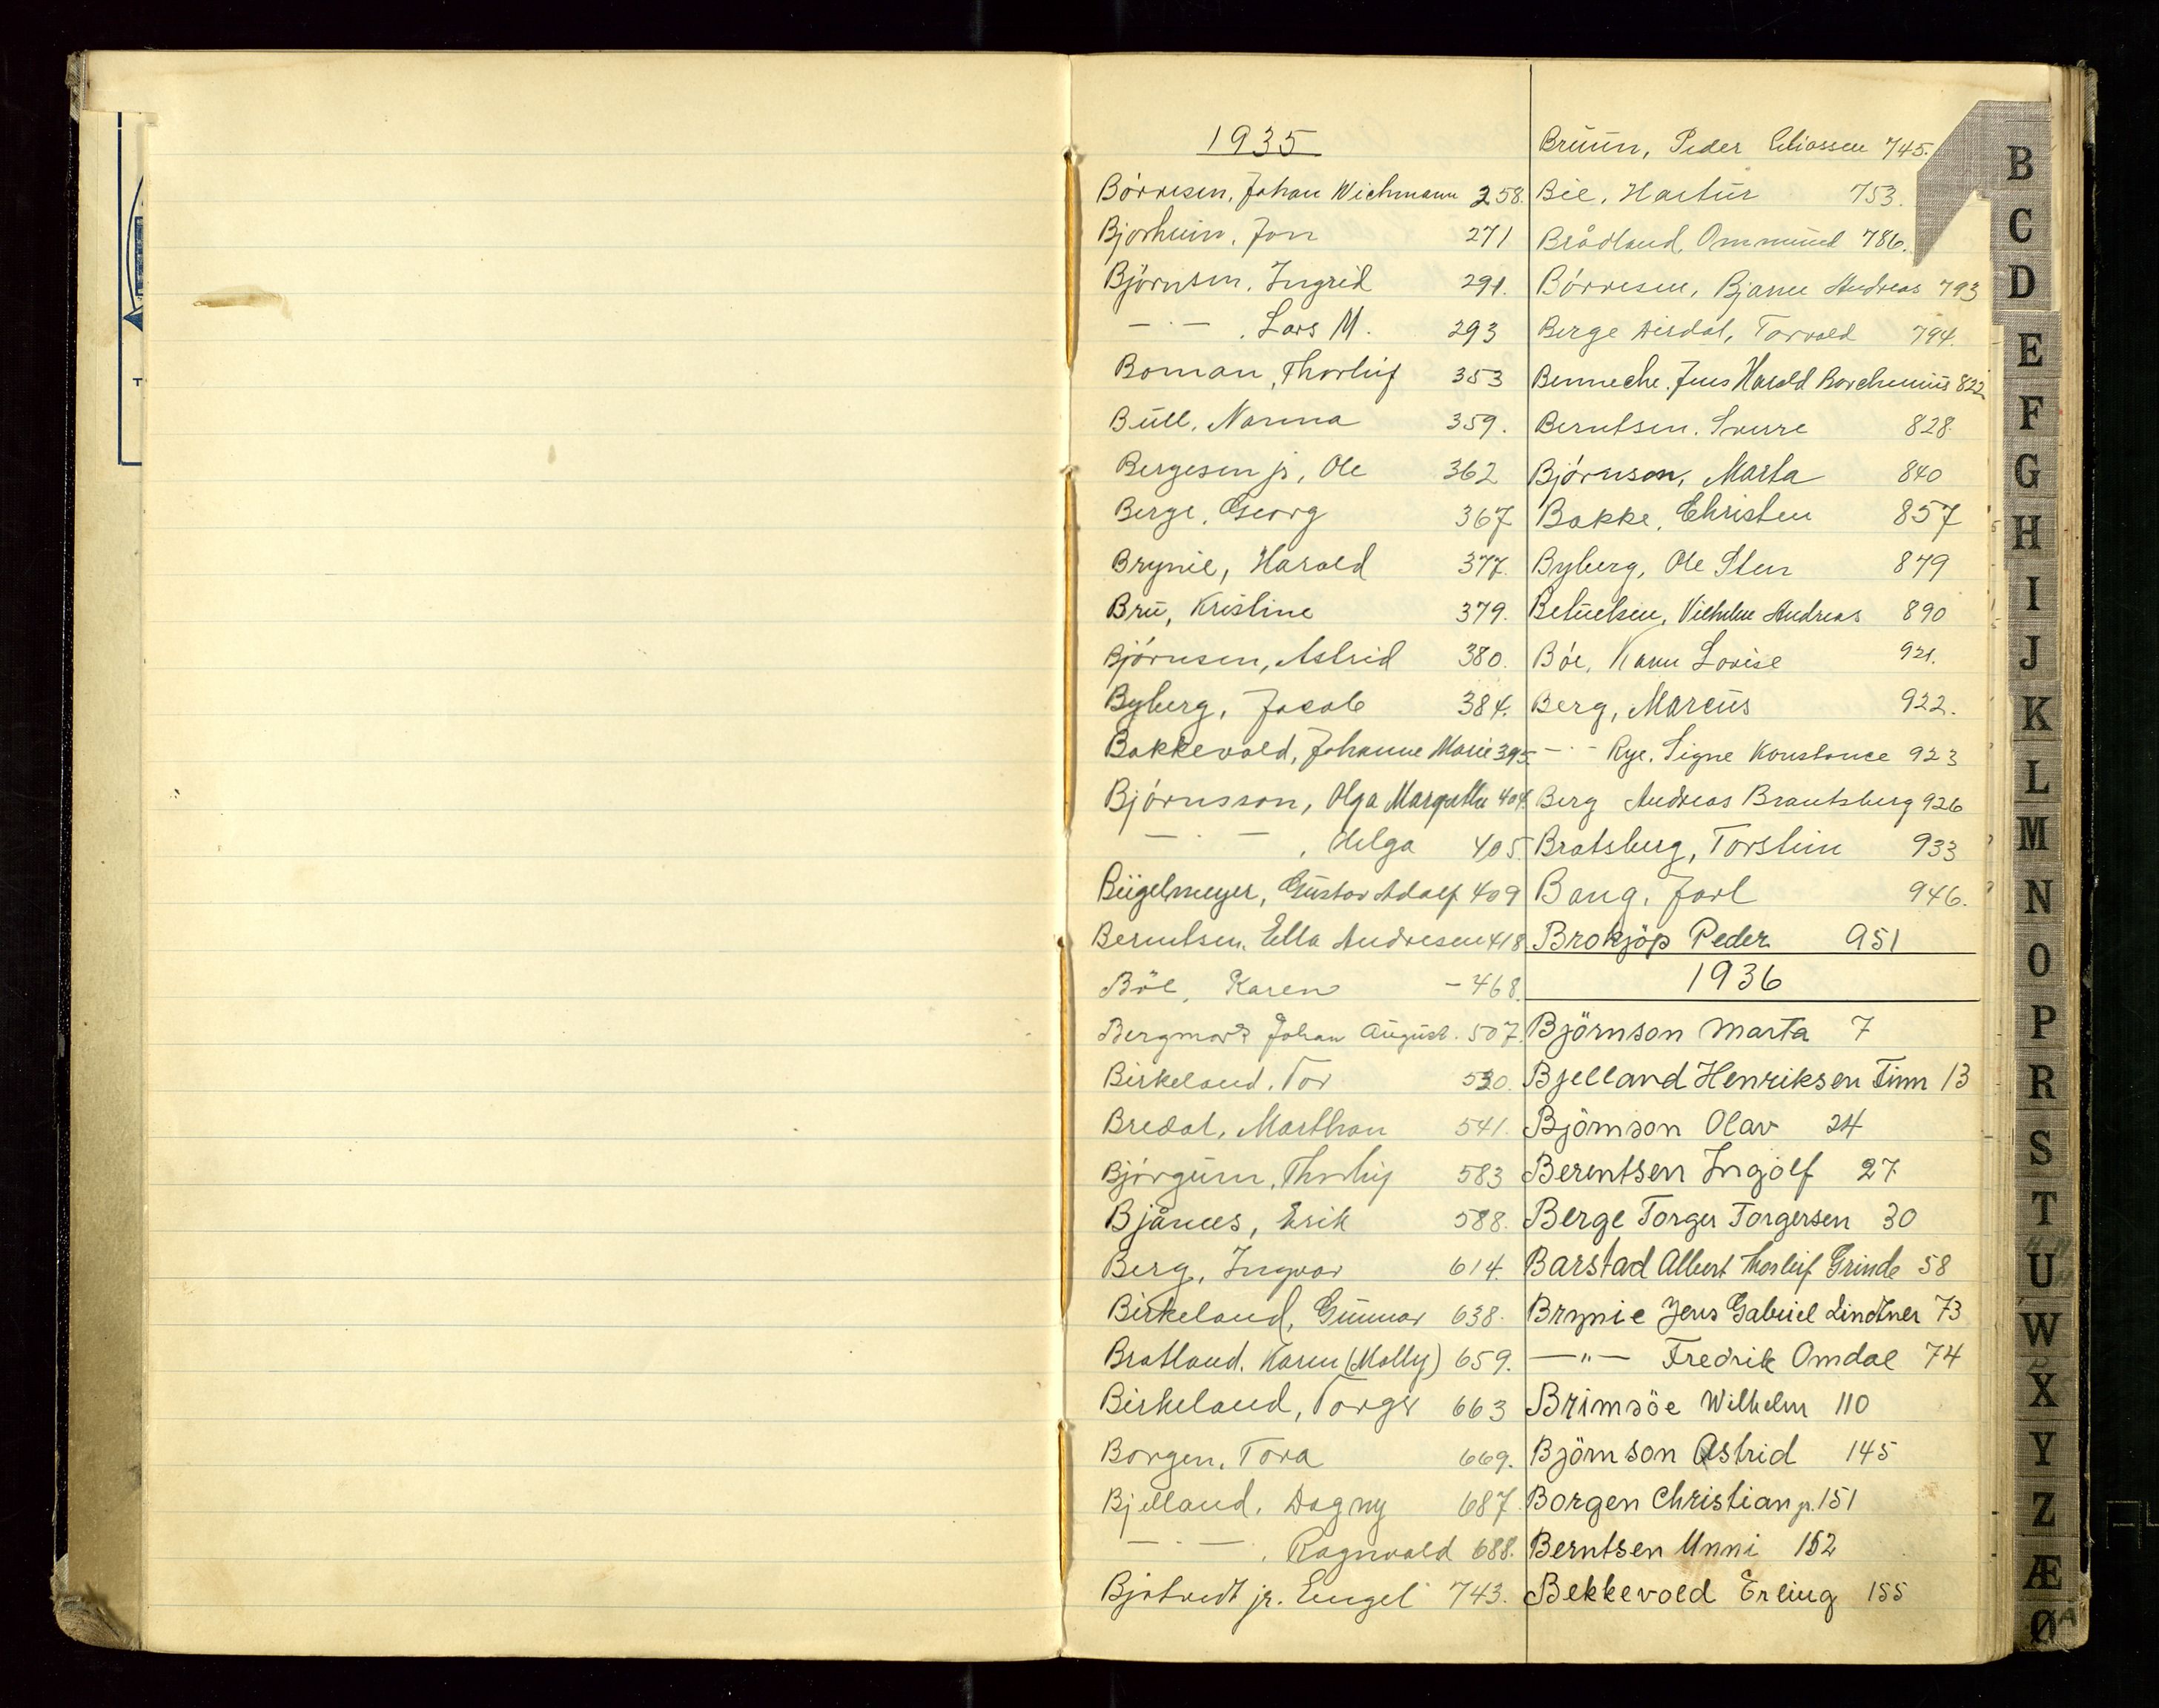 1935
Börresen, Johan Wichmann 258.
Bjorheim, Jon 271
Björnsen, Ingrid 291.
— · — , Lars M. 293
Boman, Thorleif 353
Bull, Nanna 359.
Bergesen jr, Ole 362
Berge, Georg 367
Brynie, Harald 377.
Bru, Kristine 379.
Björnsen, Astrid 380.
Byberg, Jacob 384.
Bakkevold, Johanne Marie 395.
Björnsson, Olga Margrethe 404.
— · — , Helga 405.
Bügelmeyer, Gustav Adolf 409
Berntsen, Ella Andresen 418.
Böe, Karen - 468.
Bergmark Johan August. 507.
Birkeland, Tor 530.
Bredal, Marthon 541.
Björgum, Thorleif 583
Bjånes, Erik 588.
Berg, Ingvar 614.
Birkeland, Gunnar 638.
Bratland, Karen (Molly) 659.
Birkeland, Torger 663
Borgen, Tora 669.
Bjelland, Dagny 687.
— · — , Ragnvald 688.
jr. Engel 743.
Bruun, Peder Eliassen 745.
Bie, Hartur 753.
Brådland, Ommund 786.
Börresen, Bjarne Andreas 793
Berge Disdal, Torvald 794.
Benneche, Jens Harald Borchenius 822
Berntsen, Sverre 828.
Björnson, Marta 840
Bakke, Christen 857
Byberg, Ole Sten 879
Betuelsen, Vilhelm Andreas 890
Böe, Karen Lovise 921.
Berg, Marcus 922.
— · — Rye, Signe Konstance 923
Berg Andreas Brantsberg 926
Bratsberg, Torstein 933
Bang, Jarl 946.
Brokjöp Peder 951
1936
Björnson Marta 7
Bjelland Henriksen Finn 13
Björnson Olav 24
Berentsen Ingolf 27
Berge Torger Torgersen 30
Barstad Albert Thorleif Grinde 58
Brynie Jens Gabriel Lindtner 73
— " — Fredrik Omdal 74
Brimsöe Wilhelm 110
Björnson Astrid 145
Borgen Christian jr. 151
Berntsen Unni 152
Bekkevold Erling 155
B
C
D
E
F
G
H
I
J
K
L
M
N
O
P
R
S
T
U
W
X
Y
Z
Æ
Ø